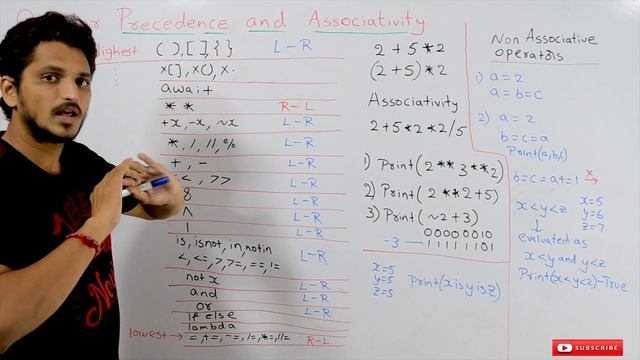 Precedence and Associativity
Highest ( ), [ ], { } L-R
x[], x(), x.
await
** R-L
+x, -x, ~x L-R
*, /, //, % L-R
+, - L-R
<, >> L-R
& L-R
^ L-R
| L-R
is, is not, in, not in
<, <=, >, >=, ==, != L-R
not x
and L-R
or L-R
if else
lambda
lowest → R-L
2 + 5 * 2
(2 + 5) * 2
Associativity
2 + 5 * 2 * 2 / 5
1) Print ( 2 ** 3 ** 2 )
2) Print ( 2 ** 2 + 5 )
3) Print ( ~2 + 3 )
00000010
-3 — 11111101
x=5
y=5
z=5
Print(x is y is z)
Non Associative
operators
1) a = 2
a = b = c
2) a = 2
b = c = a
Print(a,b,c)
b = c = a += 1 x →
x < y < z
x = 5
y = 6
z = 7
↓
evaluated as
x < y and y < z
Print(x < y < z) - True
SUBSCRIBE